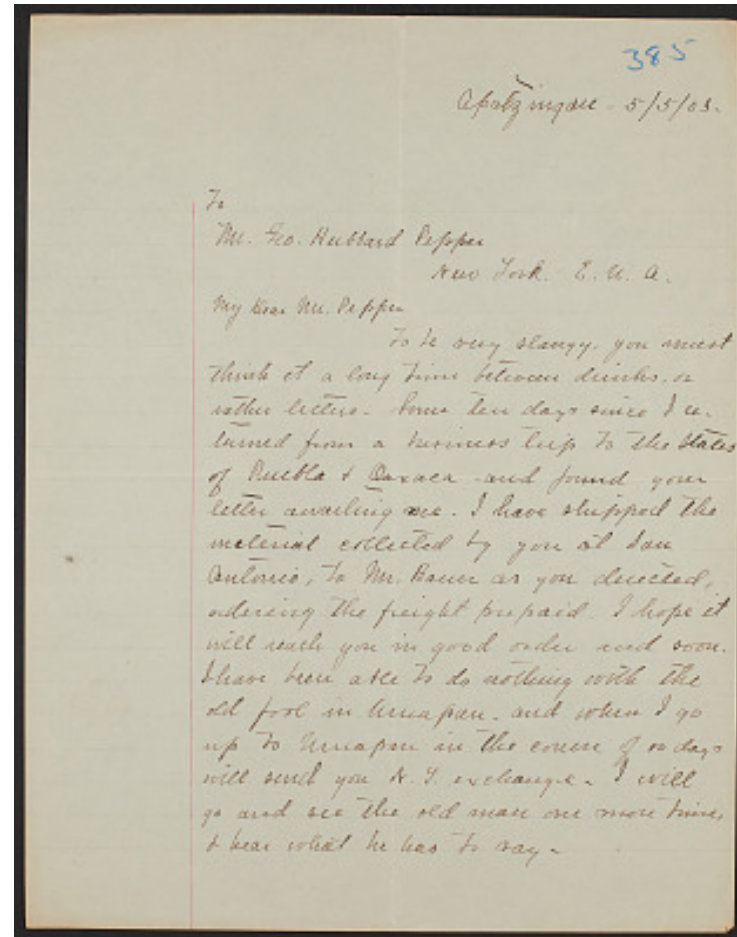 385
Apatzingan - 5/5/03.
To
Mr. Geo. Hubbard Pepper
New York. E. U. A.
My Dear Mr. Pepper
To be very slangy, you must
think it a long time between drinks, or
rather letters. Some ten days since I re-
turned from a business trip to the States
of Puebla & Oaxaca and found your
letter awaiting me. I have shipped the
material collected by you at San
Antonio, to Mr. Baum as you directed,
ordering the freight prepaid. I hope it
will reach you in good order and soon.
I have been able to do nothing with the
old fool in Uruapan. and when I go
up to Uruapan in the course of days
will send you N. Y. exchange. I will
go and see the old man one more time,
& hear what he has to say -